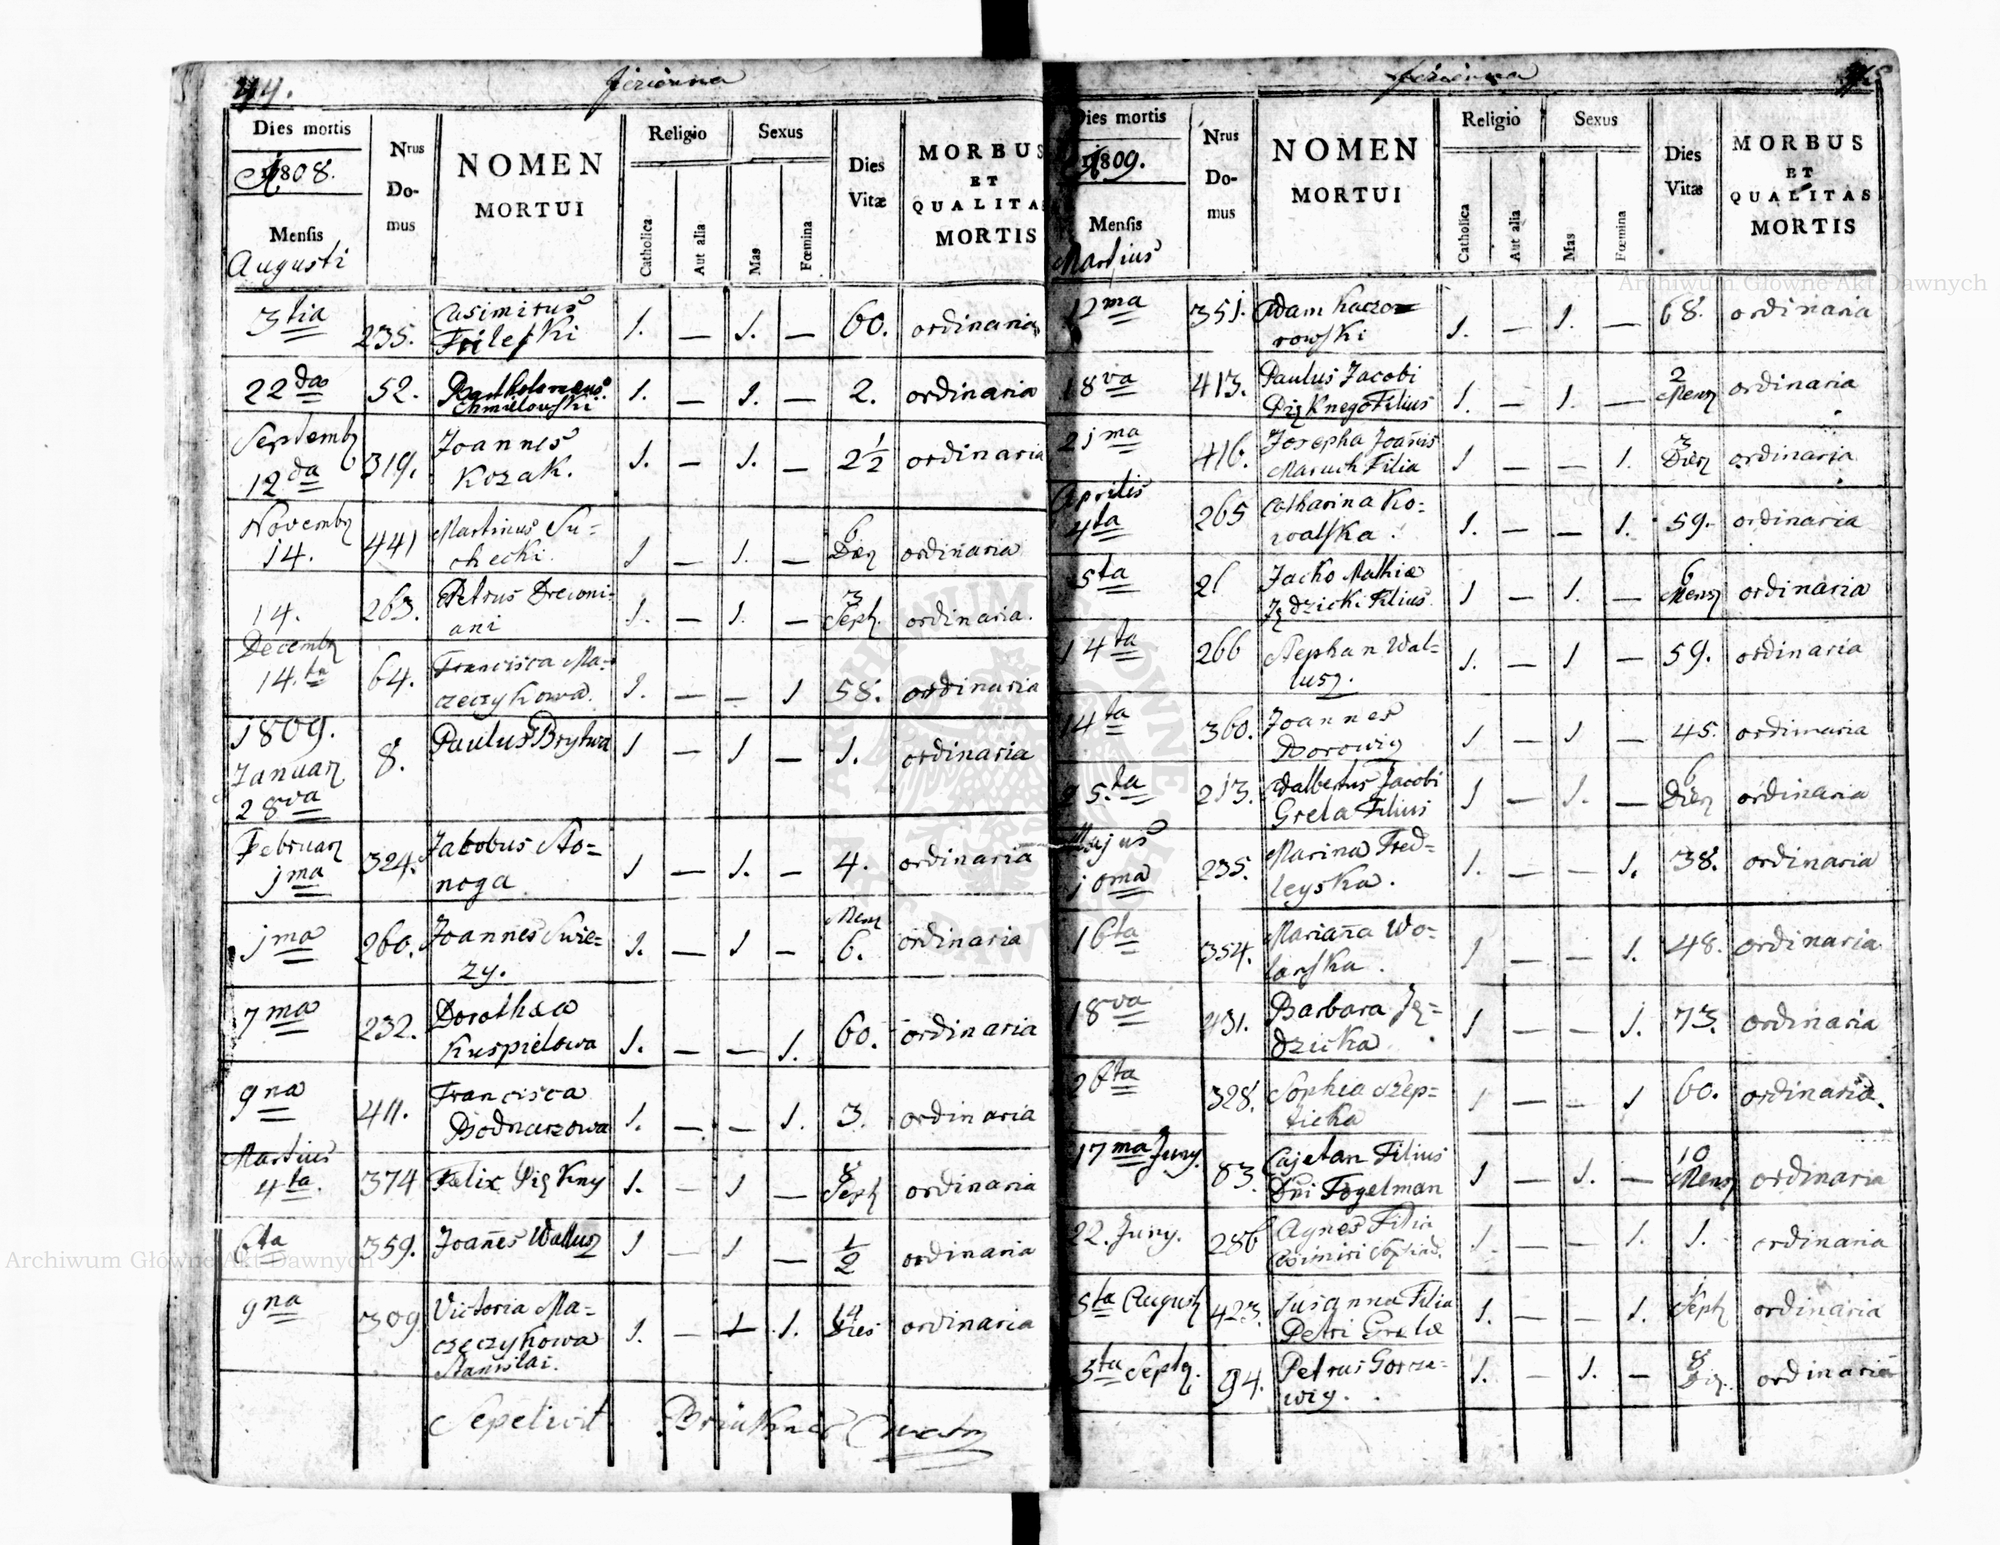 44.
Jezierna
Dies mortis
1808.
Mensis
Augusti
Nrus
Do-
mus
NOMEN
MORTUI
Religio
Catholica
Aut alia
Sexus
Mas
Fœmina
Dies
Vitæ
MORBUS
ET
QUALITAS
MORTIS
3tia 235. Casimirus 1. — 1. — 60. ordinaria
22da 52. Bartholomeus 1. — 1. — 2. ordinaria
Chmielowski
Septembr
12da 319. Joannes 1. — 1. — 2½ ordinaria
Kozak.
Novembr
14. 441 Martinus Su- 1 — 1. — 6 ordinaria
checki. Dier
14. 263. Petrus Drewni- 1. — 1. — 3 ordinaria.
ani Sept.
Decembr
14.ta 64. Francisca Ma- 1. — — 1 58. ordinaria
czeczykowa.
1809.
Januar 8. Paulus Brytwa 1 — 1 — 1. ordinaria
28va
Februar 324. Jakobus Sto- 1 — 1. — 4. ordinaria
1ma noga
1ma 260. Joannes Swie- 1. — 1 — Mens ordinaria
zy. 6.
7ma 232. Dorothea 1. — — 1. 60. ordinaria
Kuspielowa
9na 411. Francisca 1. — — 1. 3. ordinaria
Bodnarzowa
Martius
4ta. 374 Felix Diękny 1. — 1 — 8 ordinaria
Sept
6ta 359. Joañes Walusz 1 — 1 — ½ ordinaria
9na 309 Victoria Ma- 1. — 1. 14 ordinaria
czeczykowa Dies
Stanislai.
Sepelivit Brükner Curatus
Jezierna
45
Dies mortis
1809.
Mensis
Martius
Nrus
Do-
mus
NOMEN
MORTUI
Religio
Catholica
Aut alia
Sexus
Mas
Fœmina
Dies
Vitæ
MORBUS
ET
QUALITAS
MORTIS
12ma 351. Adam Kaczo- 1. — 1. — 68. ordinaria
rowski
18va 413. Paulus Jacobi 1. — 1. — 2 ordinaria
Dięknego Filius Mens
21ma 416. Josepha Joañis 1 — — 1. 3 ordinaria
Maruch Filia Dier
Aprilis
4ta 265 Catharina Ko- 1. — — 1. 59. ordinaria
walska.
5ta 26 Jacko Mathiæ 1 — 1. — 6 ordinaria
Jędzicki Filius. Mens
14ta 266 Stephan Wal- 1. — 1 — 59. ordinaria
lusz.
14ta 360. Joannes 1 — 1 — 45. ordinaria
Borowiz
25.ta 213. Adalbertus Jacobi 1 — 1. — 6 ordinaria
Grela Filius Dier
Majus
10ma 235. Marina Fred- 1. — — 1. 38. ordinaria
leyska.
16ta 354. Mariaña Wo- 1 — — 1. 48. ordinaria
lanska.
18va 431. Barbara Ję- 1 — — 1. 73. ordinaria
dzicka
26ta 328. Sophia Szep- 1 — — 1 60. ordinaria.
ticka
17ma Juny. 83. Cajetan Filius 1 — 1. — 10 ordinaria
Dñi Fogelman Mens
22. Juny. 286 Agnes Filia 1 — — 1. 1. ordinaria
Casimiri
5ta August 423. Susanna Filia 1. — — 1. 1 ordinaria
Petri Grelæ Sept
5ta Septr. 94. Petrus Gorza- 1. — 1. — 8 ordinaria
wiz.
Archiwum Główne Akt Dawnych
Archiwum Główne Akt Dawnych
ARCHIWUM GŁÓWNE AKT DAWNYCH